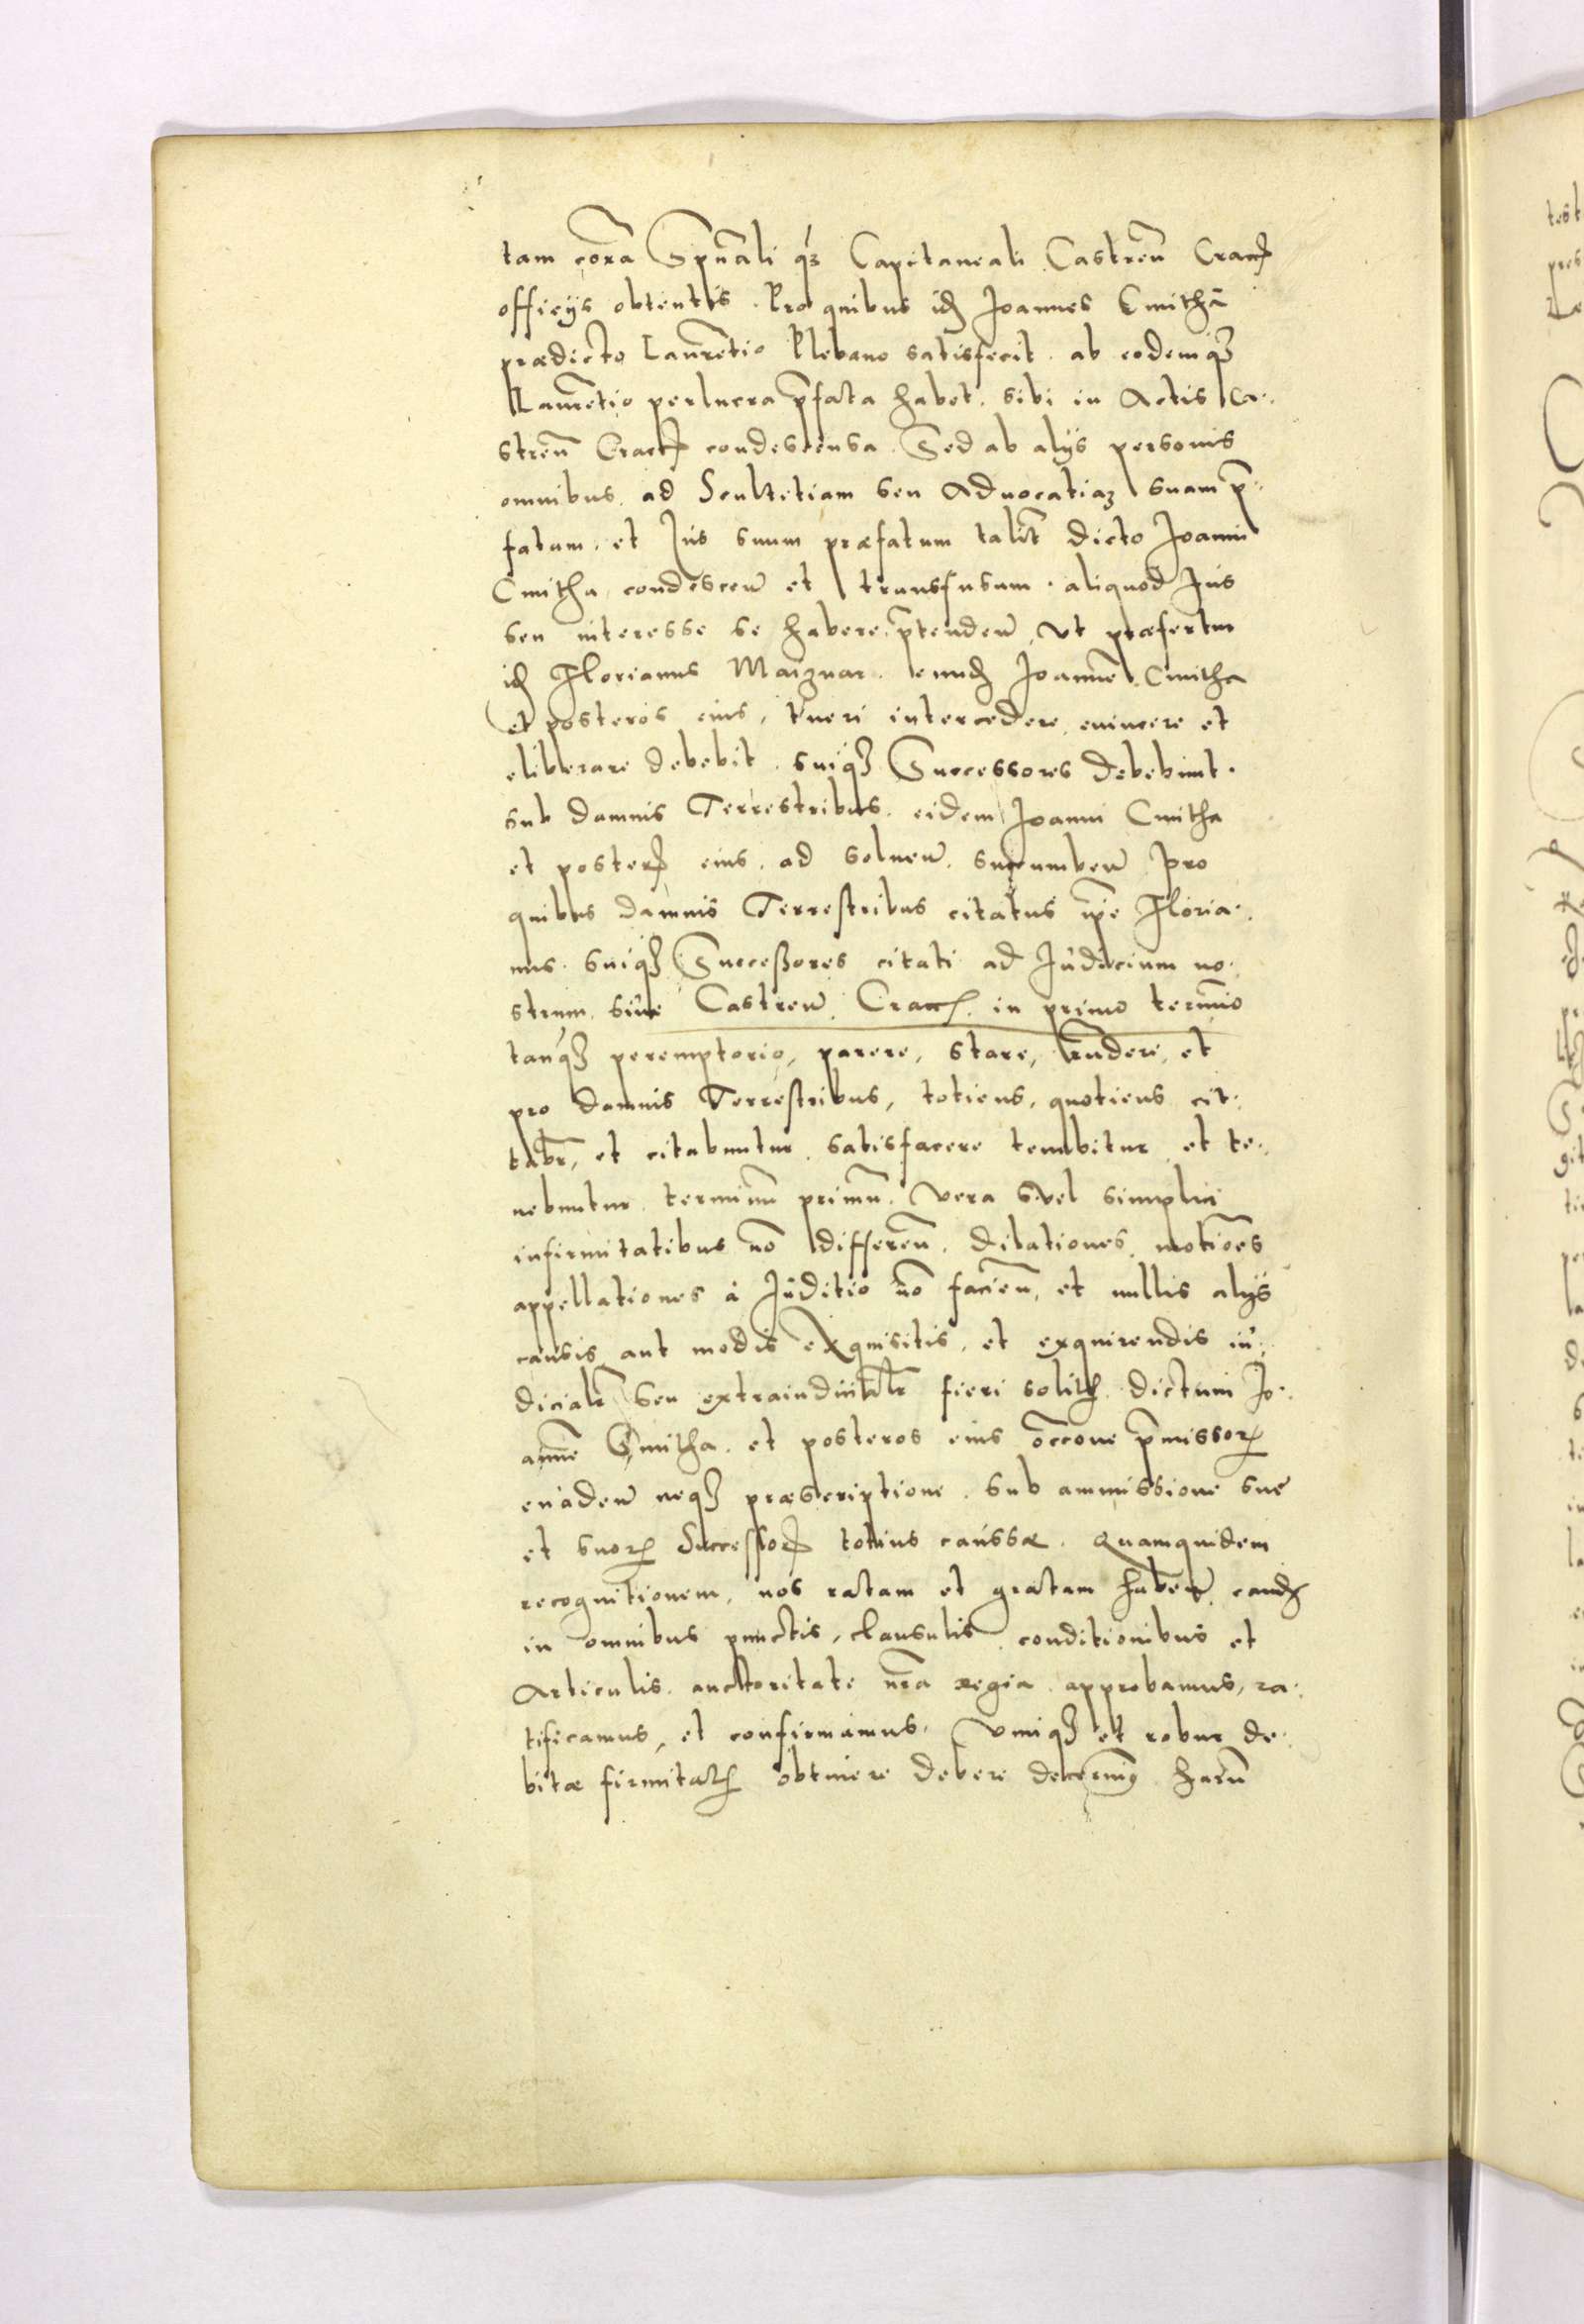 tam cora͂ Spu͂ali q́ꝫ Capitaneali Castren͂ Cracꝭ
officijs obtentis. Pro quibus idꝫ Joannes Cmitha
prædicto Laure͂tio Plebano satisfecit. ab eodemqꝫ
Laure͂tio perlucra p͂fata habet. sibi in Actis Ca-
stren͂ Cracꝭ condescensa. Sed ab alijs personis
omnibus. ad Scultetiam seu Aduocatiaꝫ suam p͂-
fatam. et Jus suum præfatum talit͂ dicto Joanni
Cmitha condescen͂ et transfusum. aliquod Jus
seu interesse se habere p͂tenden͂, vt præfertur
idꝫ Florianus Maiznar. eundꝫ Joanne͂ Cmitha
et posteros eius, tueri intercedere, euincere et
elibterare debebit. suiqꝫ Successores debebunt.
sub damnis Terrestribus. eidem Joanni Cmitha
et posterꝭ eius. ad soluen͂. succumben͂ pro
quibus damnis Terrestribus citatus ip͂e Floria-
nus. suiqꝫ Succeßores citati ad Judicium no-
strum. siue Castren͂. Cracꝭ. in primo termi͂o
tanq́ꝫ peremptorio, parere, stare, rn͂dere, et
pro damnis Terrestribus, totiens, quotiens cit-
tabr͂, et citabuntur. satisfacere tenebitur et te-
nebuntur. terminu͂ primu͂. vera s. vel simplici
infirmitatibus no͂ differen͂. Dilationes, motio͂es
appellationes à Juditio no͂ facien͂, et nullis alijs
causis aut modis exquisitis, et exquirendis iu-
dicialr͂ seu extraiudicialr͂ fieri solitꝭ. dictum Jo-
anne͂ Cmitha. et posteros eius occ͂one p͂missorꝝ
euaden͂ neqꝫ præscriptione. sub ammissione sue
et suorꝝ Successorꝭ totius caussæ. Quamquidem
recognitionem, nos ratam et gratam haben͂. eandꝫ
in omnibus punctis, clausulis, conditionibus et
Articulis. auctoritate nr͂a regia. approbamus, ra-
tificamus, et confirmamus. Vimqꝫ et robur de-
bitæ firmitatꝭ obtinere debere decernim9 haru͂